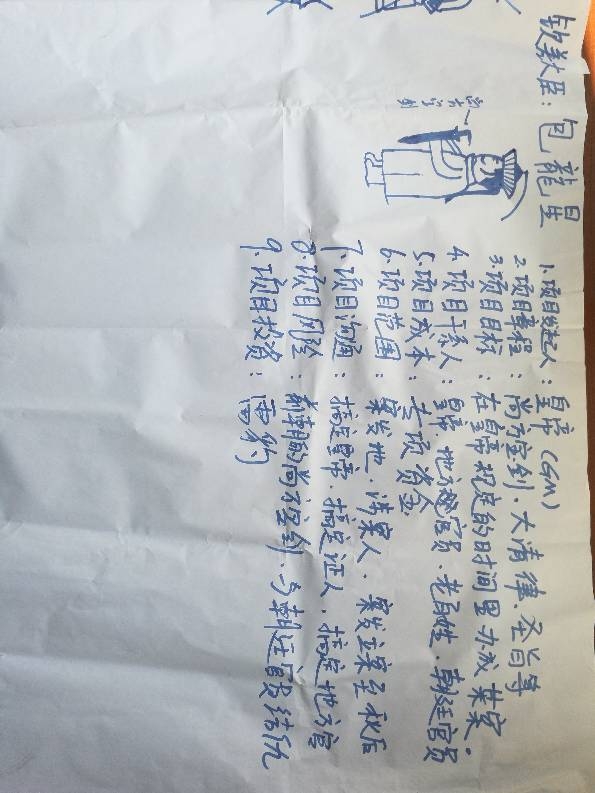 钦差大臣：包龍星
尚方宝剑
1.项目发起人：皇帝（GM）
2.项目章程：尚方宝剑.大清律.圣旨等
3.项目目标：在皇帝规定的时间里办成某案.
4.项目干系人：皇帝.地方官员.老百姓.朝廷官员
5.项目成本：专项资金
6.项目范围：案发地.涉案人.案发立案至秋后
7.项目沟通：搞定皇帝.搞定证人.搞定地方官
8.项目风险：前朝的尚方宝剑.与朝廷官员结仇
9.项目投资：面彩